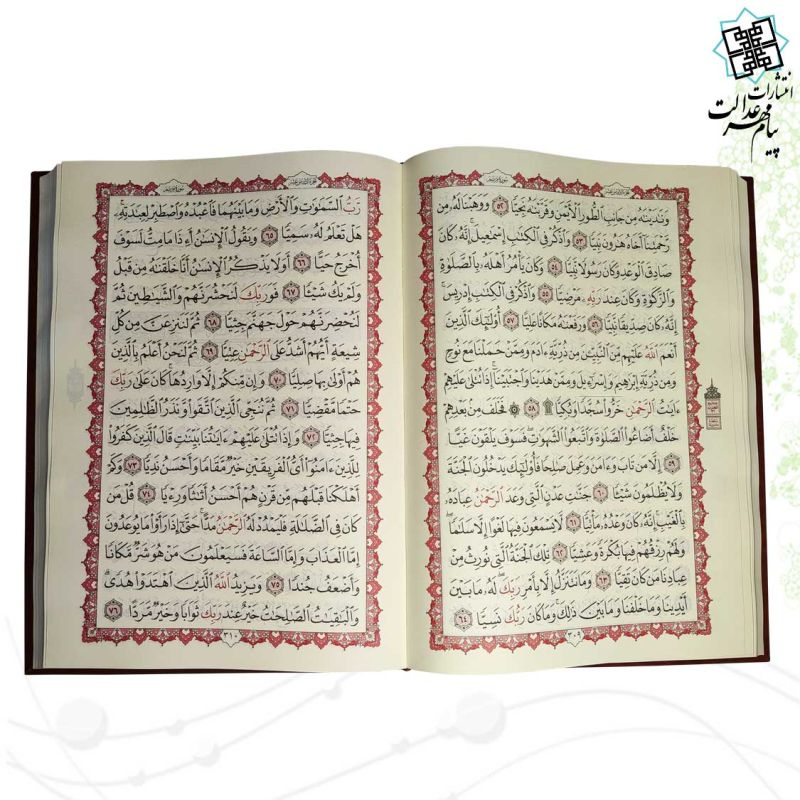 انتشارات
پیام مهر عدالت
وَنَٰدَيْنَٰهُ مِن جَانِبِ ٱلطُّورِ ٱلْأَيْمَنِ وَقَرَّبْنَٰهُ نَجِيًّا ﴿٥٢﴾ وَوَهَبْنَا لَهُۥ مِن
رَّحْمَتِنَآ أَخَاهُ هَٰرُونَ نَبِيًّا ﴿٥٣﴾ وَٱذْكُرْ فِى ٱلْكِتَٰبِ إِسْمَٰعِيلَ ۚ إِنَّهُۥ كَانَ
صَادِقَ ٱلْوَعْدِ وَكَانَ رَسُولًا نَّبِيًّا ﴿٥٤﴾ وَكَانَ يَأْمُرُ أَهْلَهُۥ بِٱلصَّلَوٰةِ
وَٱلزَّكَوٰةِ وَكَانَ عِندَ رَبِّهِۦ مَرْضِيًّا ﴿٥٥﴾ وَٱذْكُرْ فِى ٱلْكِتَٰبِ إِدْرِيسَ ۚ
إِنَّهُۥ كَانَ صِدِّيقًا نَّبِيًّا ﴿٥٦﴾ وَرَفَعْنَٰهُ مَكَانًا عَلِيًّا ﴿٥٧﴾ أُو۟لَٰٓئِكَ ٱلَّذِينَ
أَنْعَمَ ٱللَّهُ عَلَيْهِم مِّنَ ٱلنَّبِيِّـۧنَ مِن ذُرِّيَّةِ ءَادَمَ وَمِمَّنْ حَمَلْنَا مَعَ نُوحٍ
وَمِن ذُرِّيَّةِ إِبْرَٰهِيمَ وَإِسْرَٰٓءِيلَ وَمِمَّنْ هَدَيْنَا وَٱجْتَبَيْنَآ ۚ إِذَا تُتْلَىٰ عَلَيْهِمْ
ءَايَٰتُ ٱلرَّحْمَٰنِ خَرُّوا۟ سُجَّدًا وَبُكِيًّا ۩ ﴿٥٨﴾ ۞ فَخَلَفَ مِنۢ بَعْدِهِمْ
خَلْفٌ أَضَاعُوا۟ ٱلصَّلَوٰةَ وَٱتَّبَعُوا۟ ٱلشَّهَوَٰتِ ۖ فَسَوْفَ يَلْقَوْنَ غَيًّا
﴿٥٩﴾ إِلَّا مَن تَابَ وَءَامَنَ وَعَمِلَ صَٰلِحًا فَأُو۟لَٰٓئِكَ يَدْخُلُونَ ٱلْجَنَّةَ
وَلَا يُظْلَمُونَ شَيْـًٔا ﴿٦٠﴾ جَنَّٰتِ عَدْنٍ ٱلَّتِى وَعَدَ ٱلرَّحْمَٰنُ عِبَادَهُۥ
بِٱلْغَيْبِ ۚ إِنَّهُۥ كَانَ وَعْدُهُۥ مَأْتِيًّا ﴿٦١﴾ لَّا يَسْمَعُونَ فِيهَا لَغْوًا إِلَّا سَلَٰمًا ۖ
وَلَهُمْ رِزْقُهُمْ فِيهَا بُكْرَةً وَعَشِيًّا ﴿٦٢﴾ تِلْكَ ٱلْجَنَّةُ ٱلَّتِى نُورِثُ مِنْ
عِبَادِنَا مَن كَانَ تَقِيًّا ﴿٦٣﴾ وَمَا نَتَنَزَّلُ إِلَّا بِأَمْرِ رَبِّكَ ۖ لَهُۥ مَا بَيْنَ
أَيْدِينَا وَمَا خَلْفَنَا وَمَا بَيْنَ ذَٰلِكَ ۚ وَمَا كَانَ رَبُّكَ نَسِيًّا ﴿٦٤﴾
٣٠٩
رَّبُّ ٱلسَّمَٰوَٰتِ وَٱلْأَرْضِ وَمَا بَيْنَهُمَا فَٱعْبُدْهُ وَٱصْطَبِرْ لِعِبَٰدَتِهِۦ ۚ
هَلْ تَعْلَمُ لَهُۥ سَمِيًّا ﴿٦٥﴾ وَيَقُولُ ٱلْإِنسَٰنُ أَءِذَا مَا مِتُّ لَسَوْفَ
أُخْرَجُ حَيًّا ﴿٦٦﴾ أَوَلَا يَذْكُرُ ٱلْإِنسَٰنُ أَنَّا خَلَقْنَٰهُ مِن قَبْلُ
وَلَمْ يَكُ شَيْـًٔا ﴿٦٧﴾ فَوَرَبِّكَ لَنَحْشُرَنَّهُمْ وَٱلشَّيَٰطِينَ ثُمَّ
لَنُحْضِرَنَّهُمْ حَوْلَ جَهَنَّمَ جِثِيًّا ﴿٦٨﴾ ثُمَّ لَنَنزِعَنَّ مِن كُلِّ
شِيعَةٍ أَيُّهُمْ أَشَدُّ عَلَى ٱلرَّحْمَٰنِ عِتِيًّا ﴿٦٩﴾ ثُمَّ لَنَحْنُ أَعْلَمُ بِٱلَّذِينَ
هُمْ أَوْلَىٰ بِهَا صِلِيًّا ﴿٧٠﴾ وَإِن مِّنكُمْ إِلَّا وَارِدُهَا ۚ كَانَ عَلَىٰ رَبِّكَ
حَتْمًا مَّقْضِيًّا ﴿٧١﴾ ثُمَّ نُنَجِّى ٱلَّذِينَ ٱتَّقَوا۟ وَّنَذَرُ ٱلظَّٰلِمِينَ
فِيهَا جِثِيًّا ﴿٧٢﴾ وَإِذَا تُتْلَىٰ عَلَيْهِمْ ءَايَٰتُنَا بَيِّنَٰتٍ قَالَ ٱلَّذِينَ كَفَرُوا۟
لِلَّذِينَ ءَامَنُوٓا۟ أَىُّ ٱلْفَرِيقَيْنِ خَيْرٌ مَّقَامًا وَأَحْسَنُ نَدِيًّا ﴿٧٣﴾ وَكَمْ
أَهْلَكْنَا قَبْلَهُم مِّن قَرْنٍ هُمْ أَحْسَنُ أَثَٰثًا وَرِءْيًا ﴿٧٤﴾ قُلْ مَن
كَانَ فِى ٱلضَّلَٰلَةِ فَلْيَمْدُدْ لَهُ ٱلرَّحْمَٰنُ مَدًّا ۚ حَتَّىٰٓ إِذَا رَأَوْا۟ مَا يُوعَدُونَ
إِمَّا ٱلْعَذَابَ وَإِمَّا ٱلسَّاعَةَ فَسَيَعْلَمُونَ مَنْ هُوَ شَرٌّ مَّكَانًا
وَأَضْعَفُ جُندًا ﴿٧٥﴾ وَيَزِيدُ ٱللَّهُ ٱلَّذِينَ ٱهْتَدَوْا۟ هُدًى ۗ
وَٱلْبَٰقِيَٰتُ ٱلصَّٰلِحَٰتُ خَيْرٌ عِندَ رَبِّكَ ثَوَابًا وَخَيْرٌ مَّرَدًّا ﴿٧٦﴾
٣١٠